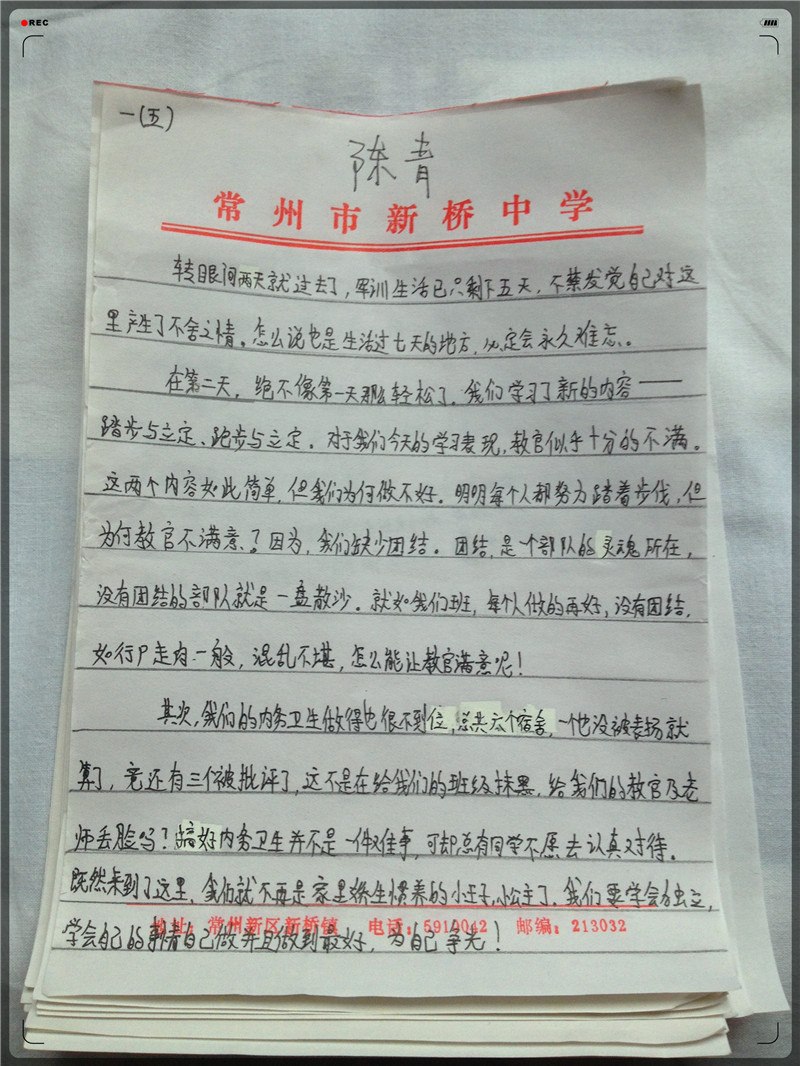 REC
一(五)
陈青
常州市新桥中学
转眼间两天就过去了，军训生活已只剩下五天，不禁发觉自己对这
里产生了不舍之情。怎么说也是生活过七天的地方，必定会永久难忘。
在第二天，绝不像第一天那么轻松了。我们学习了新的内容——
踏步与立定、跑步与立定。对于我们今天的学习表现，教官似乎十分的不满。
这两个内容如此简单，但我们为何做不好。明明每个人都努力踏着步伐，但
为何教官不满意？因为，我们缺少团结。团结，是一个部队的灵魂所在，
没有团结的部队就是一盘散沙。就如我们班，每个人做的再好，没有团结，
如行尸走肉一般，混乱不堪，怎么能让教官满意呢！
其次，我们的内务卫生做得也很不到位，总共六个宿舍，一个也没被表扬就
算了，竟还有三个被批评了，这不是在给我们的班级抹黑，给我们的教官及老
师丢脸吗？搞好内务卫生并不是一件难事，可却总有同学不愿去认真对待。
既然来到了这里，我们就不再是家里娇生惯养的小王子，小公主了，我们要学会独立，
学会自己的事情自己做并且做到最好，为自己争光！
地址：常州新区新桥镇 电话：5910042 邮编：213032